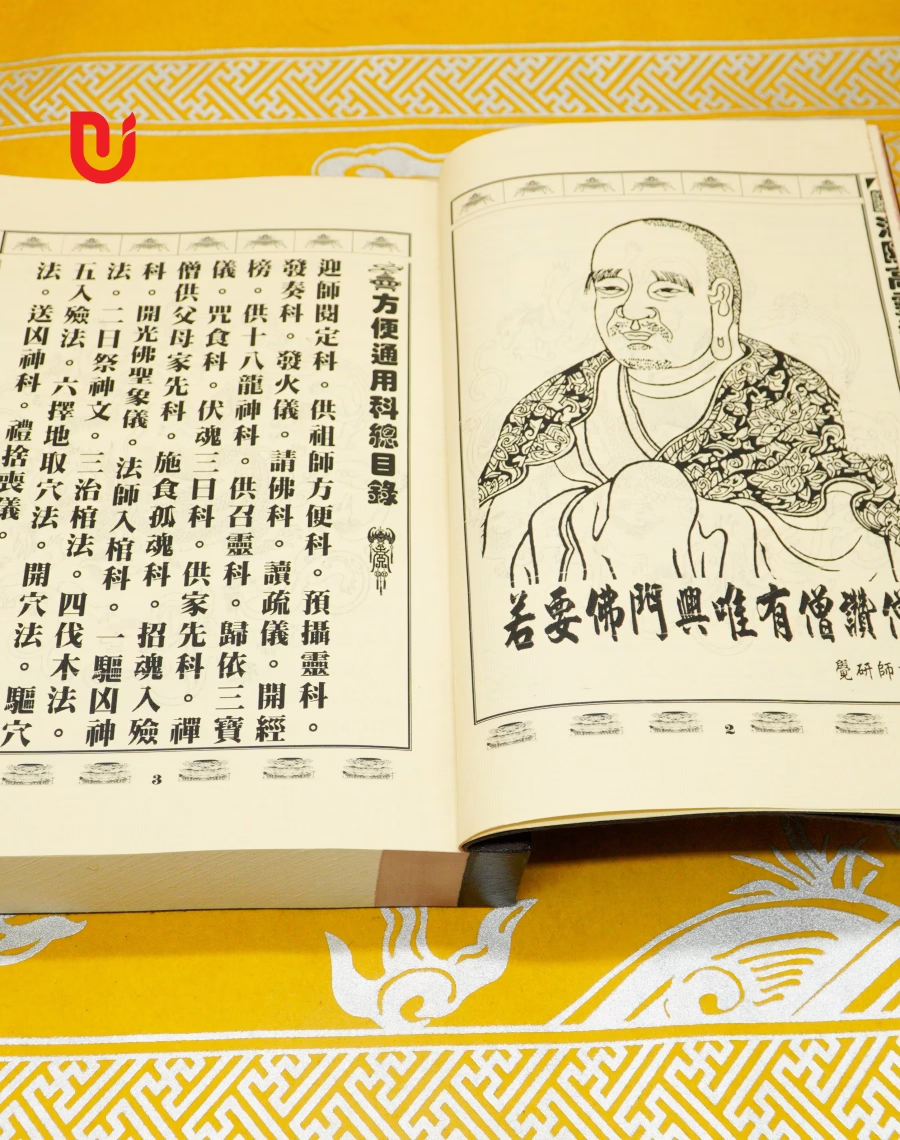 若要佛門興唯有僧讚
覺研師
2
齋方便通用科總目錄
迎師閱定科。供祖師方便科。預攝靈科。
發奏科。發火儀。請佛科。讀疏儀。開經
榜。供十八龍神科。供召靈科。歸依三寶
儀。咒食科。伏魂三日科。供家先科。禪
僧供父母家先科。施食孤魂科。招魂入殮
科。開光佛聖象儀。法師入棺科。一驅凶神
法。二曰祭神文。三治棺法。四伐木法。
五入殮法。六擇地取穴法。開穴法。驅穴
法。送凶神科。禮捨喪儀。
3